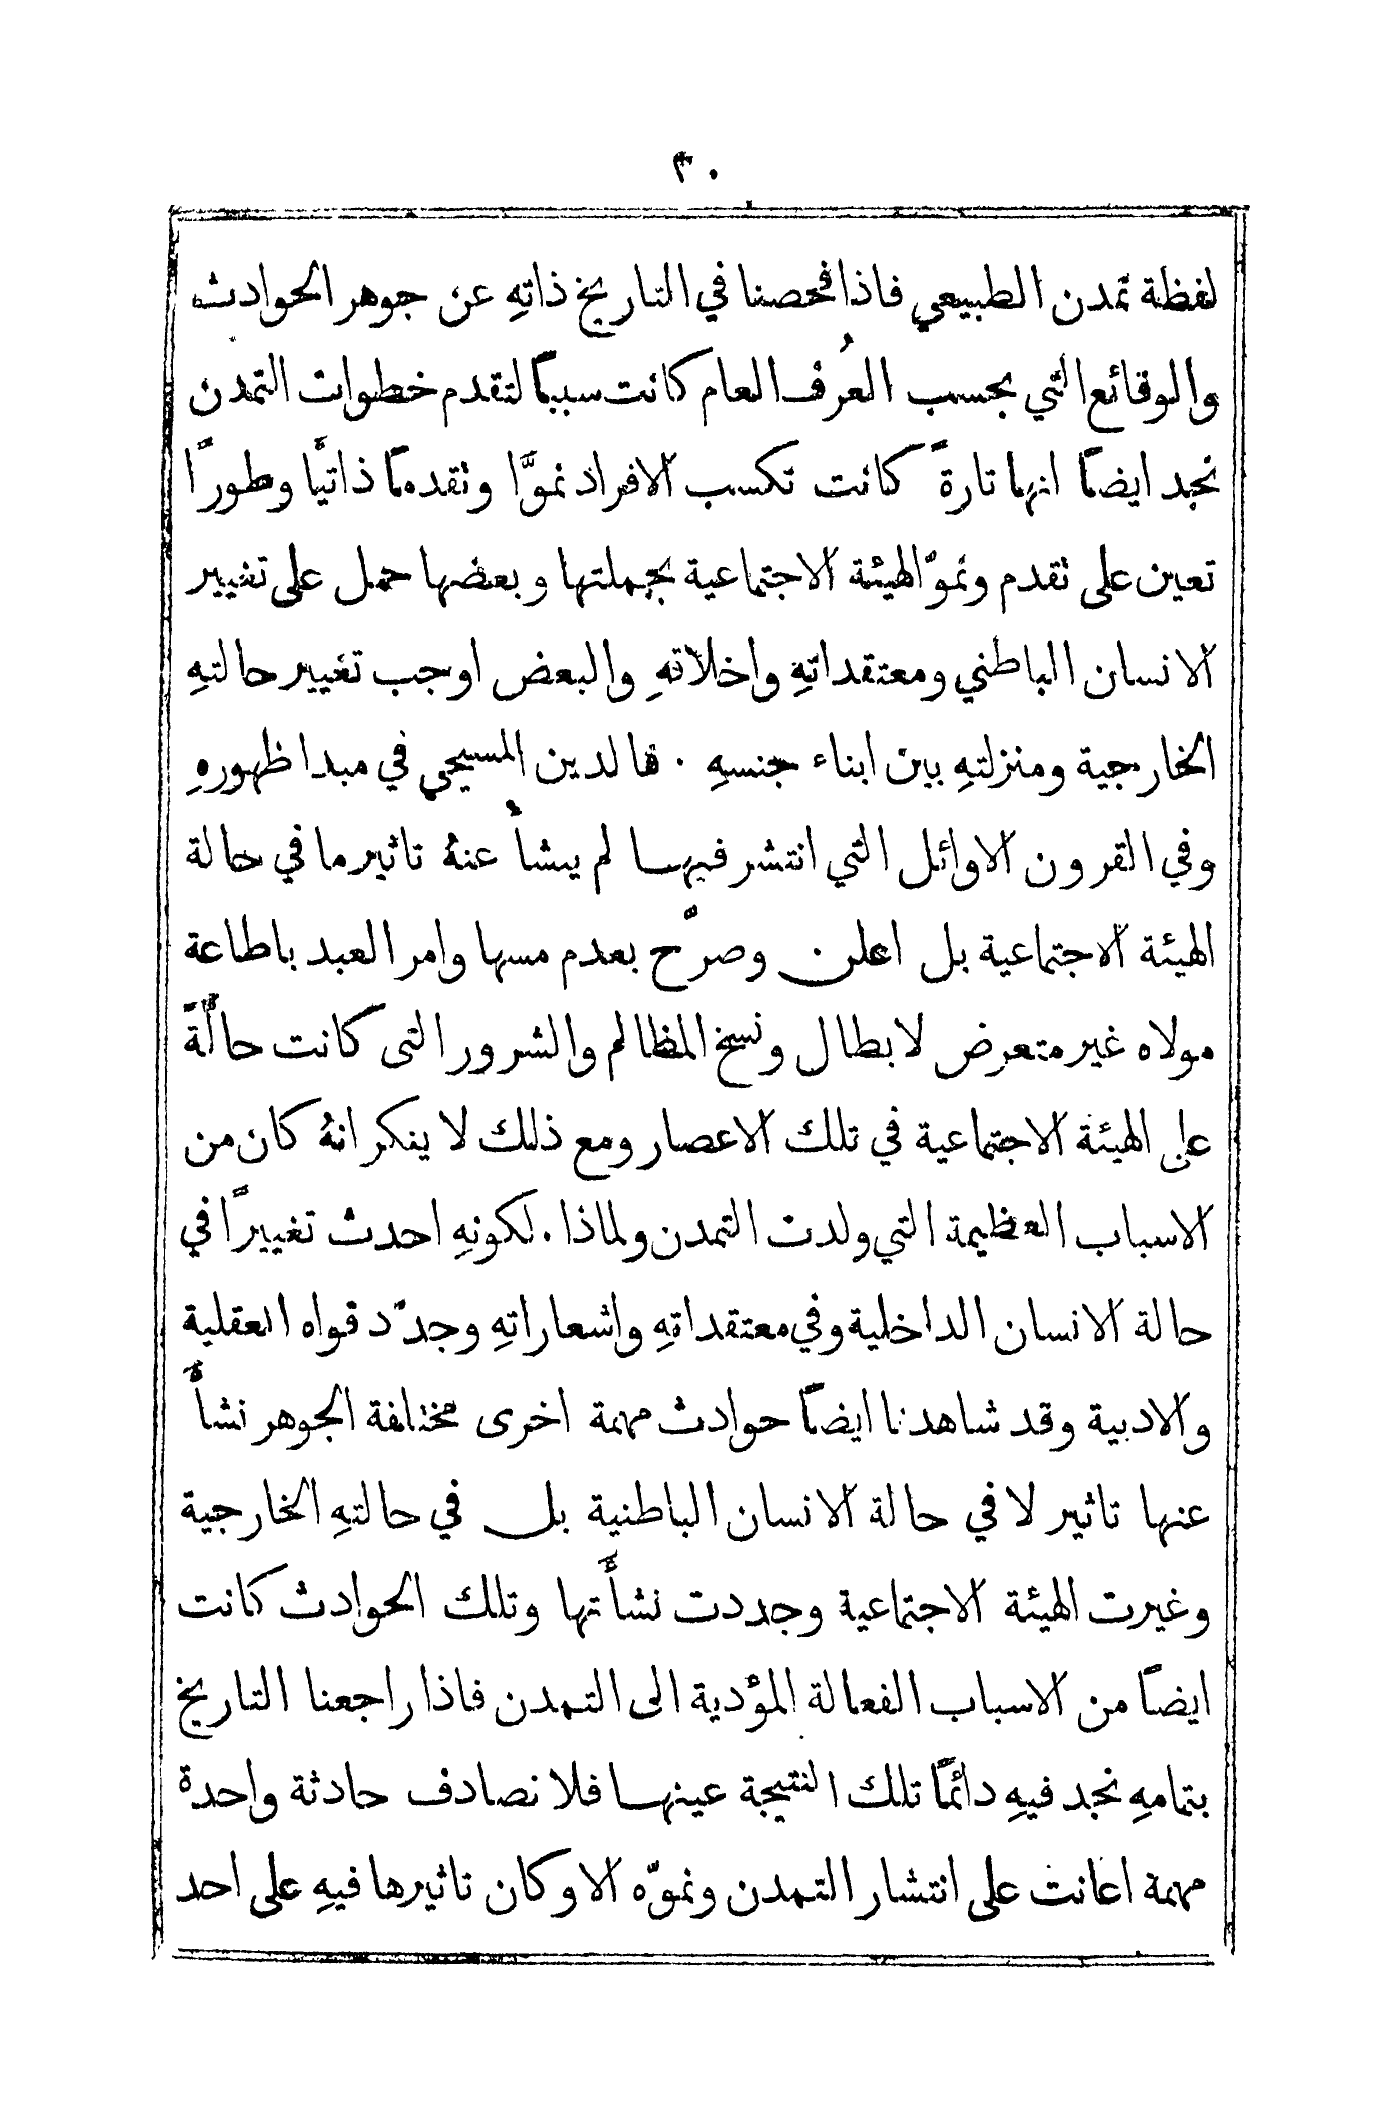 ٣٠
لفظة تمدن الطبيعي فاذا فحصنا في التاريخ ذاتهِ عن جوهر الحوادث
والوقائع التي بحسب العُرف العام كانت سببًا لتقدم خطوات التمدن
نجد ايضًا انها تارةً كانت تكسب الافراد نموًّا وتقدمًا ذاتيًّا وطورًا
تعين على تقدم ونموّ الهيئة الاجتماعية بجملتها وبعضها حمل على تغيير
الانسان الباطني ومعتقداتهِ واخلاقهِ والبعض اوجب تغيير حالتهِ
الخارجية ومنزلتهِ بين ابناء جنسهِ . فالدين المسيحي في مبدا ظهورهِ
وفي القرون الاوائل التي انتشر فيها لم ينشأ عنهُ تاثير ما في حالة
الهيئة الاجتماعية بل اعلن وصرّح بعدم مسها وامر العبد باطاعة
مولاه غير متعرض لابطال ونسخ المظالم والشرور التى كانت حالَّةً
على الهيئة الاجتماعية في تلك الاعصار ومع ذلك لا ينكر انهُ كان من
الاسباب العظيمة التي ولدت التمدن ولماذا . لكونهِ احدث تغييرًا في
حالة الانسان الداخلية وفي معتقداتهِ واشعاراتهِ وجدّد قواه العقلية
والادبية وقد شاهدنا ايضًا حوادث مهمة اخرى مختلفة الجوهر نشأ
عنها تاثير لا في حالة الانسان الباطنية بل في حالتهِ الخارجية
وغيرت الهيئة الاجتماعية وجددت نشأتها وتلك الحوادث كانت
ايضًا من الاسباب الفعالة المؤدية الى التمدن فاذا راجعنا التاريخ
بتمامهِ نجد فيهِ دائمًا تلك النتيجة عينها فلا نصادف حادثة واحدة
مهمة اعانت على انتشار التمدن ونموّه الا وكان تاثيرها فيهِ على احد